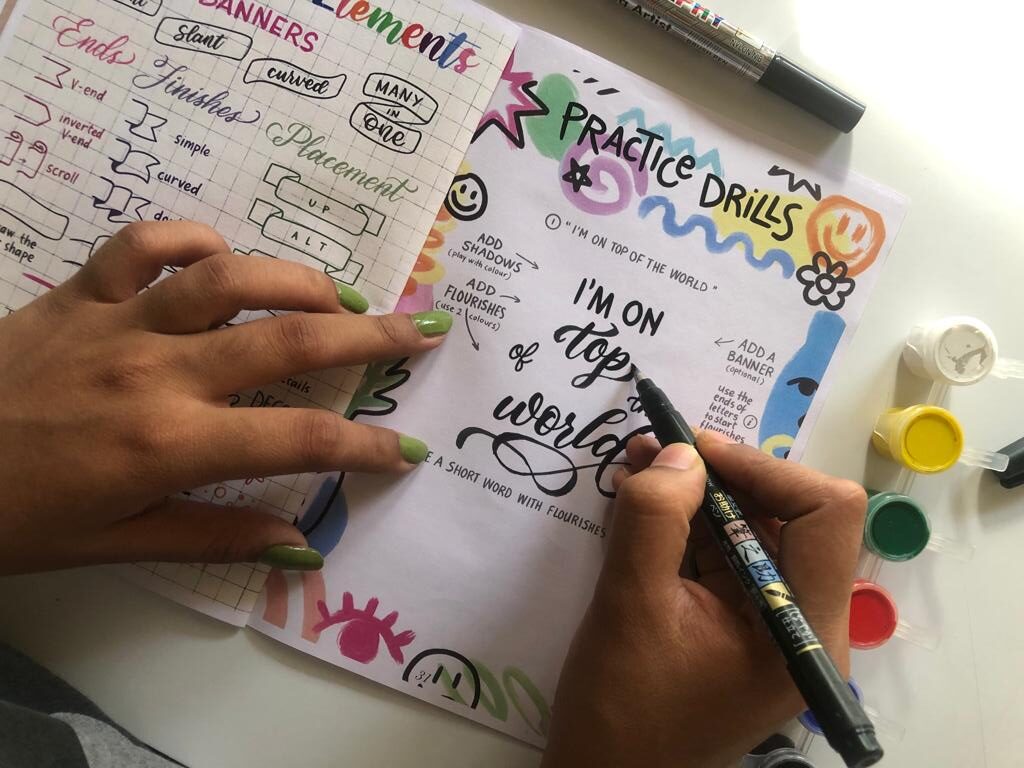 Elements
BANNERS
Slant
curved
MANY
IN
one
Ends
V-end
inverted
V-end
scroll
draw the
shape
Finishes
simple
curved
Placement
UP
ALT
PRACTICE DRILLS
① "I'M ON TOP OF THE WORLD"
ADD
SHADOWS
(play with colour)
ADD
FLOURISHES
(use 2 colours)
I'M ON
top
of
world
ADD A
BANNER
(optional)
use the
ends of
letters
to start
flourishes
A SHORT WORD WITH FLOURISHES
31